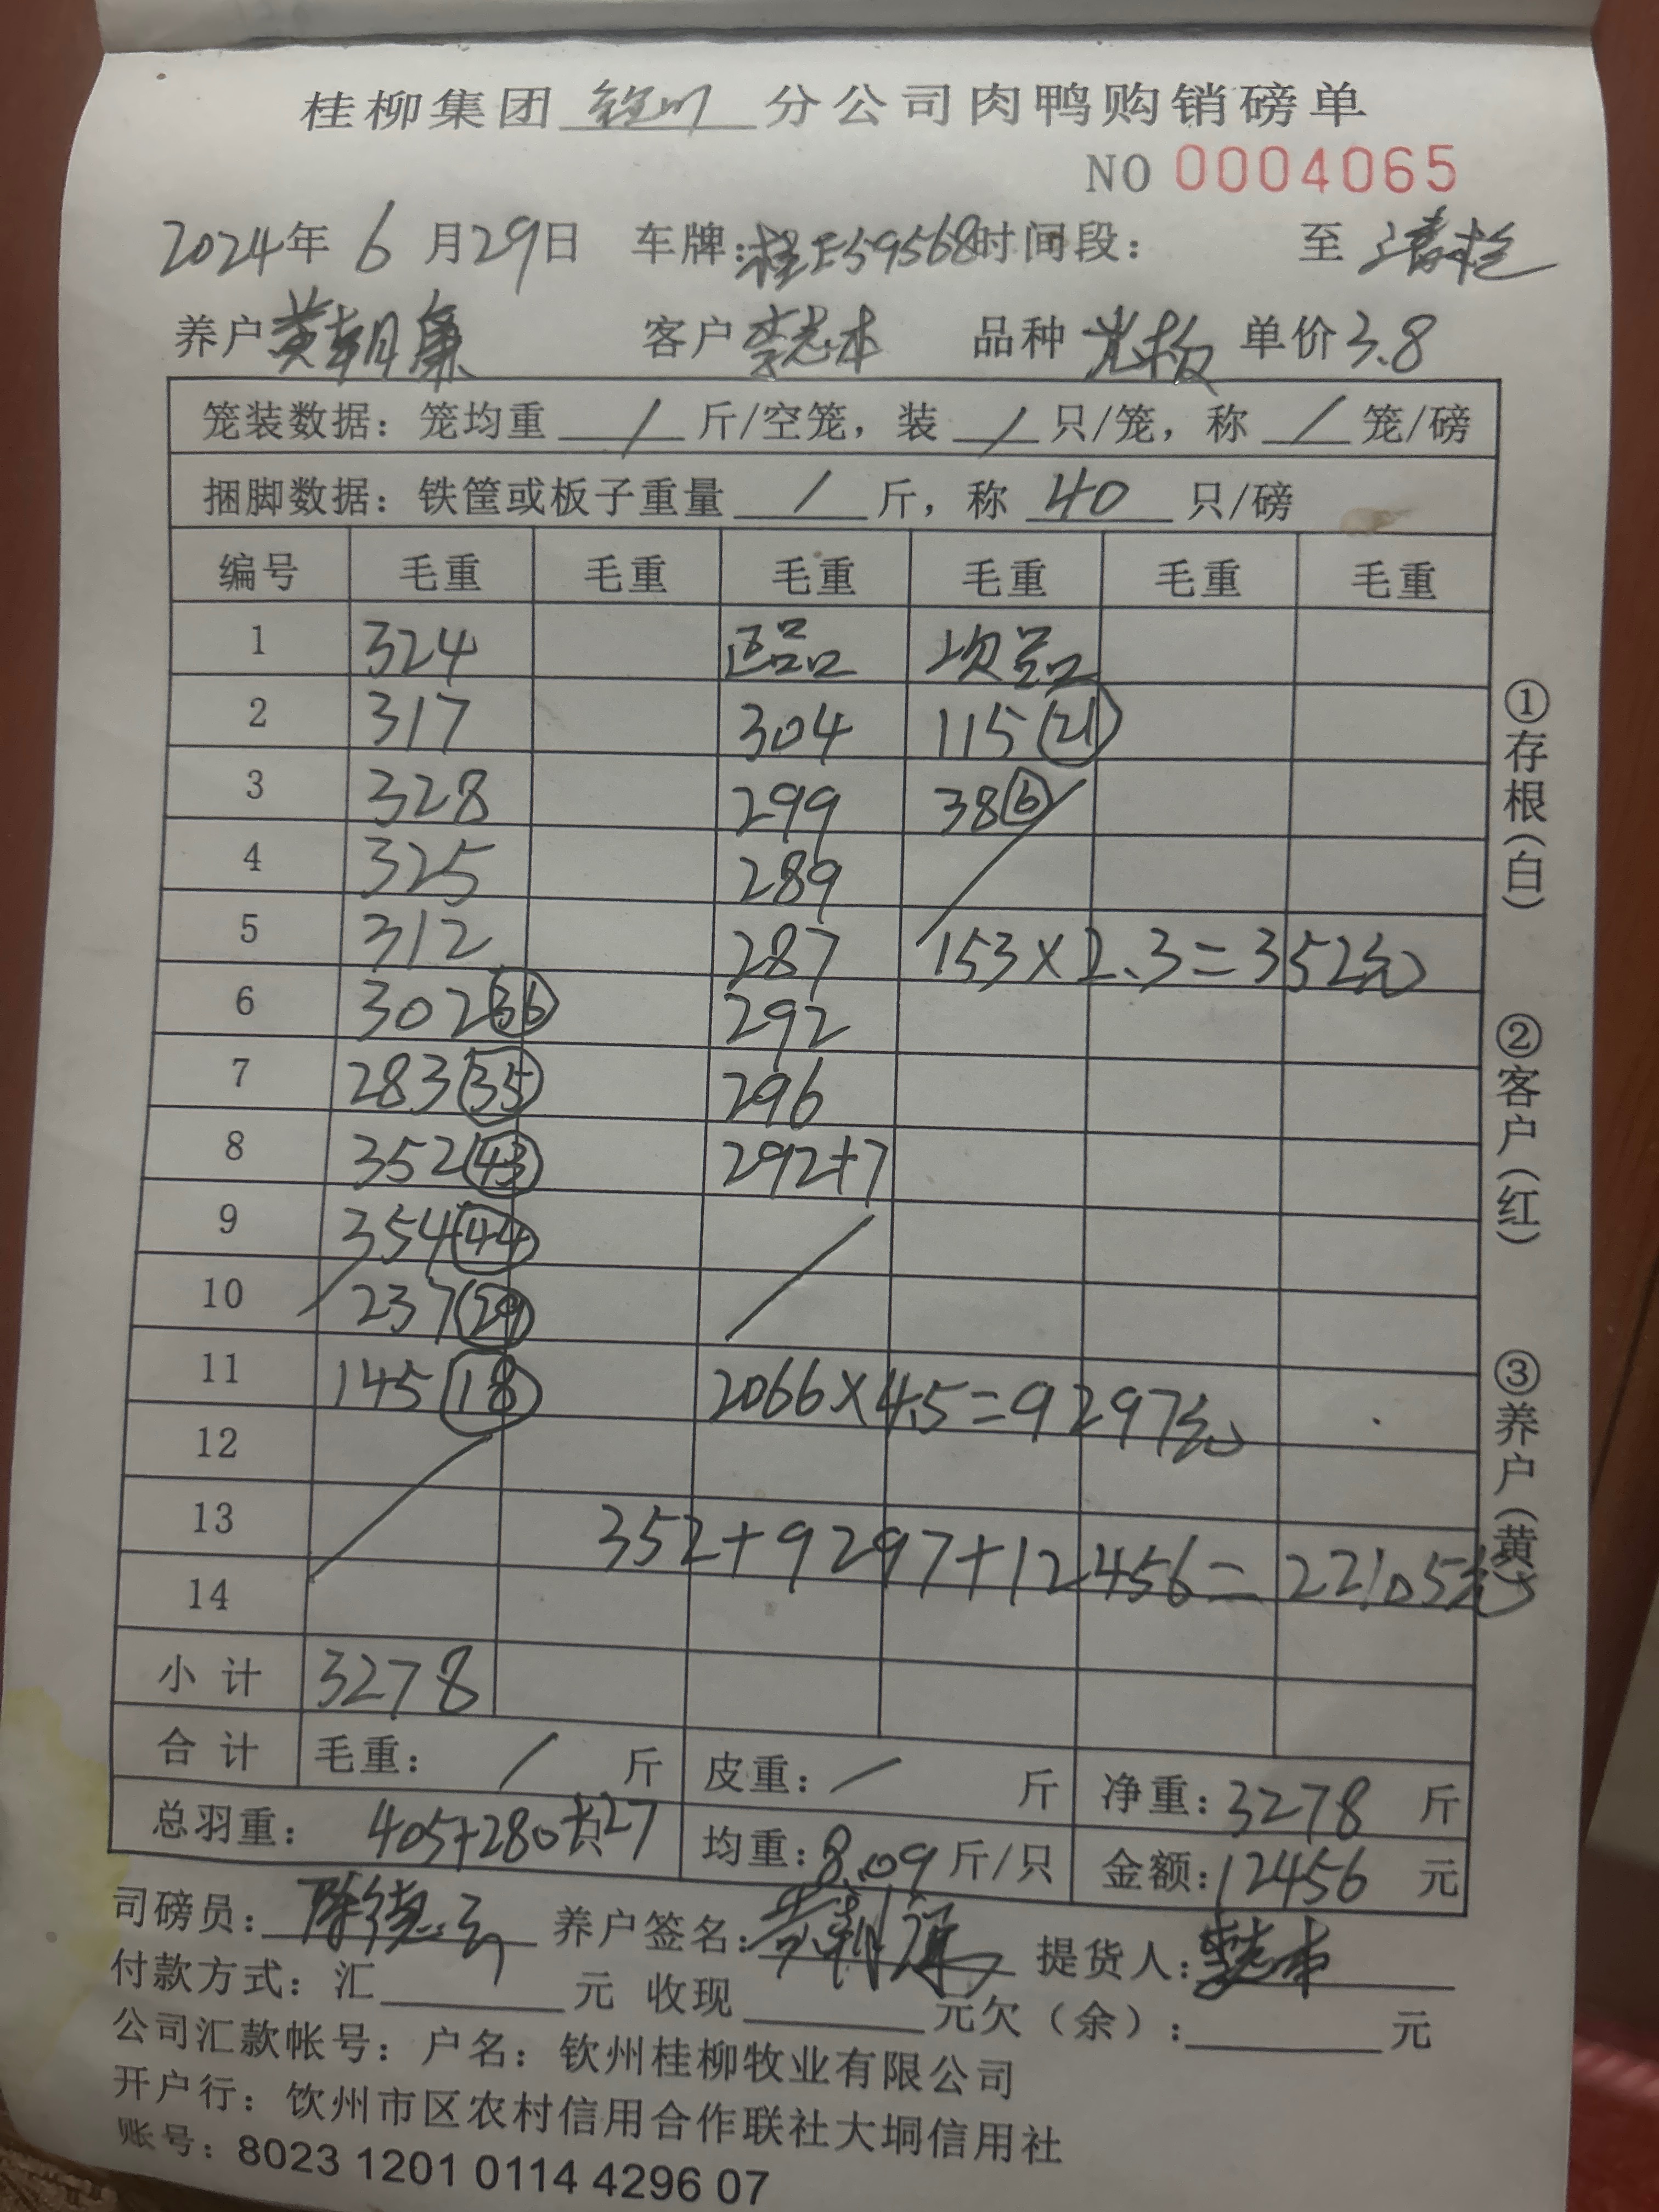 桂柳集团 钦州 分公司肉鸭购销磅单
NO 0004065
2024年 6 月29日 车牌:桂E59568时间段: 至 清栏
养户 黄朝廉 客户 李志本 品种 光板 单价3.8
笼装数据: 笼均重 / 斤/空笼, 装 / 只/笼, 称 / 笼/磅
捆脚数据: 铁筐或板子重量 / 斤, 称 40 只/磅
编号 毛重 毛重 毛重 毛重 毛重 毛重
1 324 正品 次品
2 317 304 115 (21)
3 328 299 38 (6)
4 325 289
5 312 287 153×2.3=352元
6 302 (36) 292
7 283 (35) 296
8 352 (43) 292+7
9 354 (44)
10 237 (29)
11 145 (18) 2066×4.5=9297元
12
13 352+9297+12456=22105元
14
小计 3278
合计 毛重: / 斤 皮重: / 斤 净重: 3278 斤
总羽重: 405+280+27 均重: 8.09 斤/只 金额: 12456 元
司磅员: 陈德云 养户签名: 黄朝廉 提货人: 李志本
付款方式: 汇 元 收现 元欠(余): 元
公司汇款帐号: 户名: 钦州桂柳牧业有限公司
开户行: 钦州市区农村信用合作联社大垌信用社
账号: 8023 1201 0114 4296 07
①存根(白)
②客户(红)
③养户(黄)